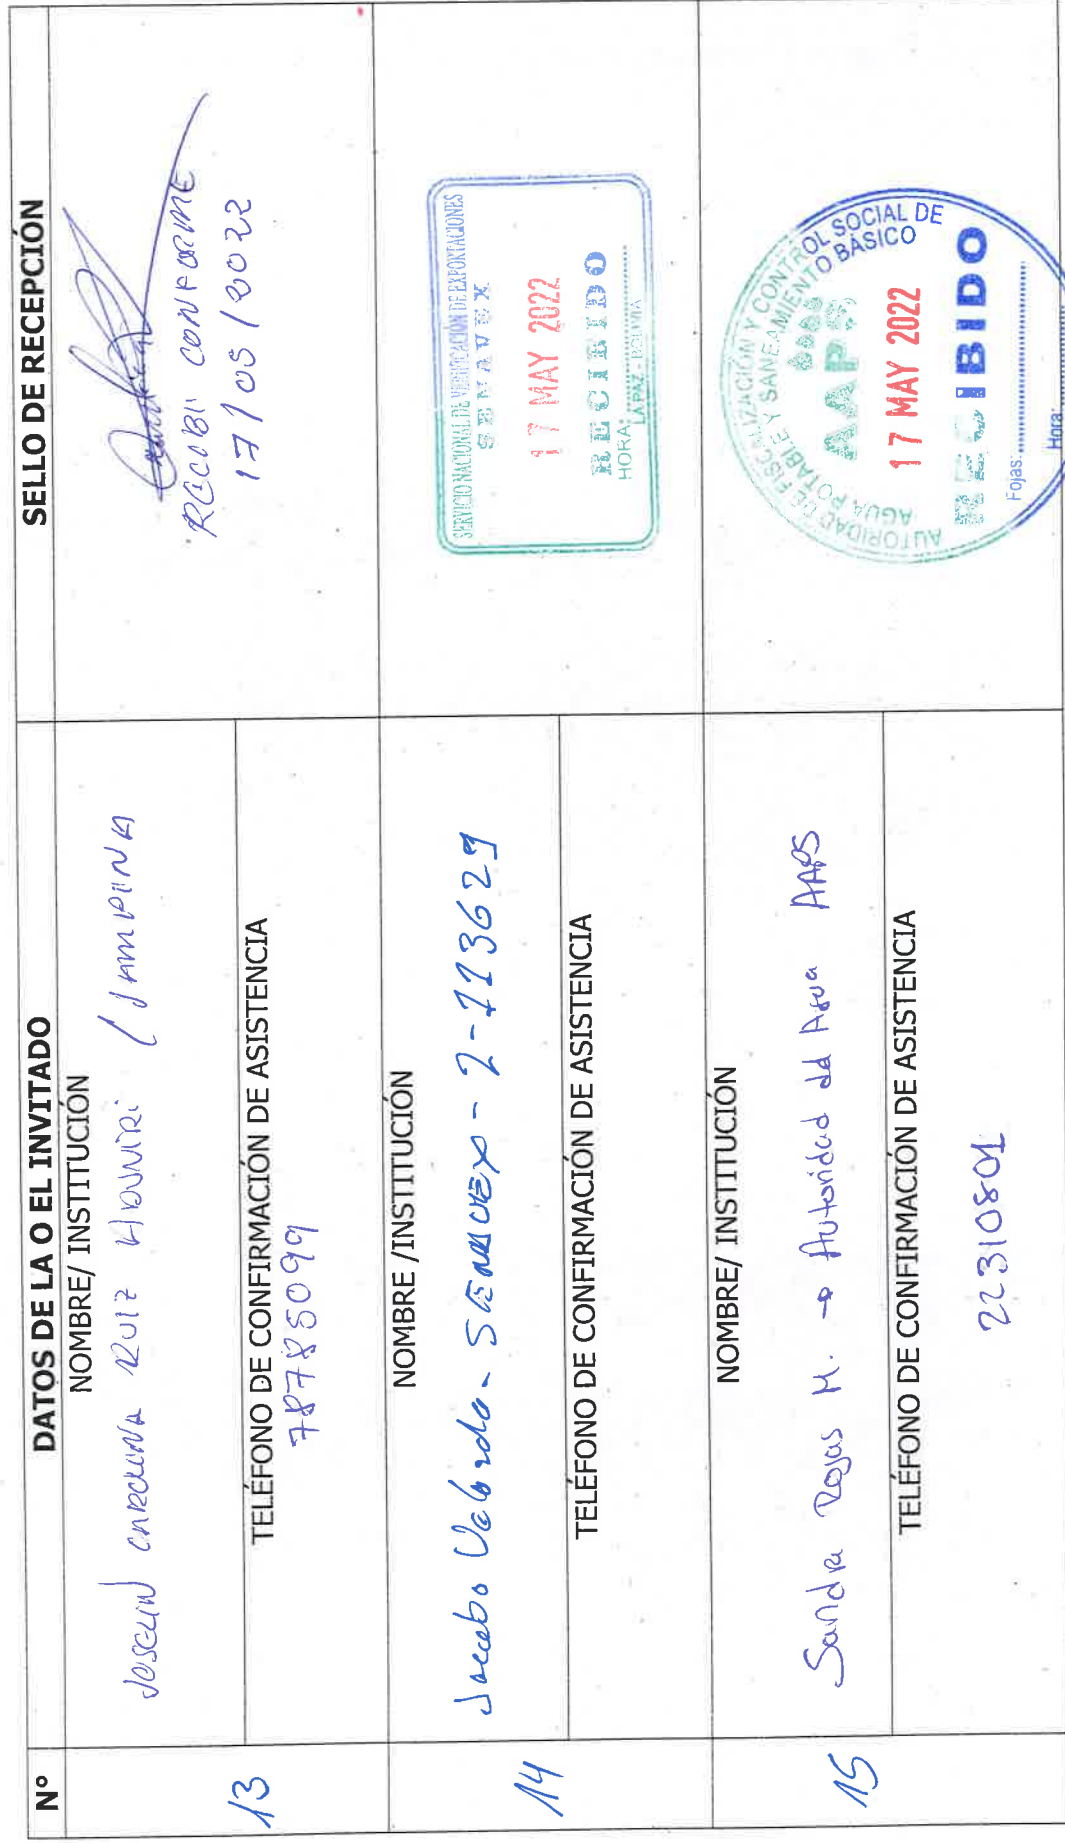 Nº DATOS DE LA O EL INVITADO SELLO DE RECEPCIÓN
13
NOMBRE/ INSTITUCIÓN
CAROLINA RUIZ
TELÉFONO DE CONFIRMACIÓN DE ASISTENCIA
78785099
RECIBI CONFORME
17/05/2022
14
NOMBRE /INSTITUCIÓN
TELÉFONO DE CONFIRMACIÓN DE ASISTENCIA
SERVICIO NACIONAL DE VERIFICACIÓN DE EXPORTACIONES
SENAVEX
17 MAY 2022
RECIBIDO
HORA:
LA PAZ - BOLIVIA
15
NOMBRE/ INSTITUCIÓN
Sandra Rojas M. → Autoridad del Agua AAPS
TELÉFONO DE CONFIRMACIÓN DE ASISTENCIA
22310801
AUTORIDAD DE FISCALIZACIÓN Y CONTROL SOCIAL DE
AGUA POTABLE Y SANEAMIENTO BÁSICO
AAPS
17 MAY 2022
RECIBIDO
Fojas:
Hora: